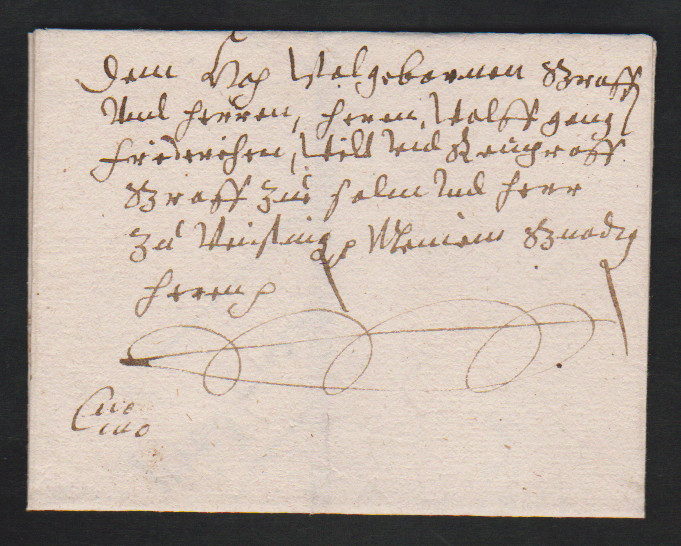 Dem Hoch Wolgebornen Graff
Und herren, herren, Wolffgang
friderichen, Wild und Reingraff
Graff zu salm und herr
zu Vinsting Meinem Gnedig
herren
Cito
cito